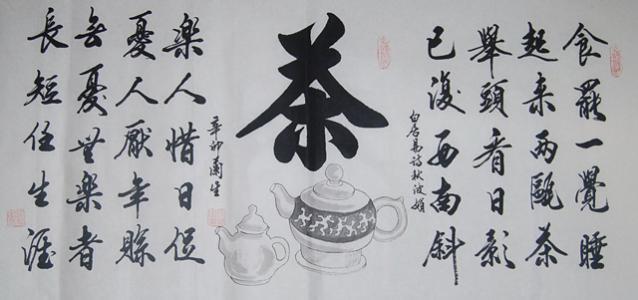 食罷一覺睡
起来兩甌茶
舉頭看日影
已復西南斜
白居易詩
茶
辛卯
樂人惜日促
憂人厭年賒
無憂無樂者
長短任生涯